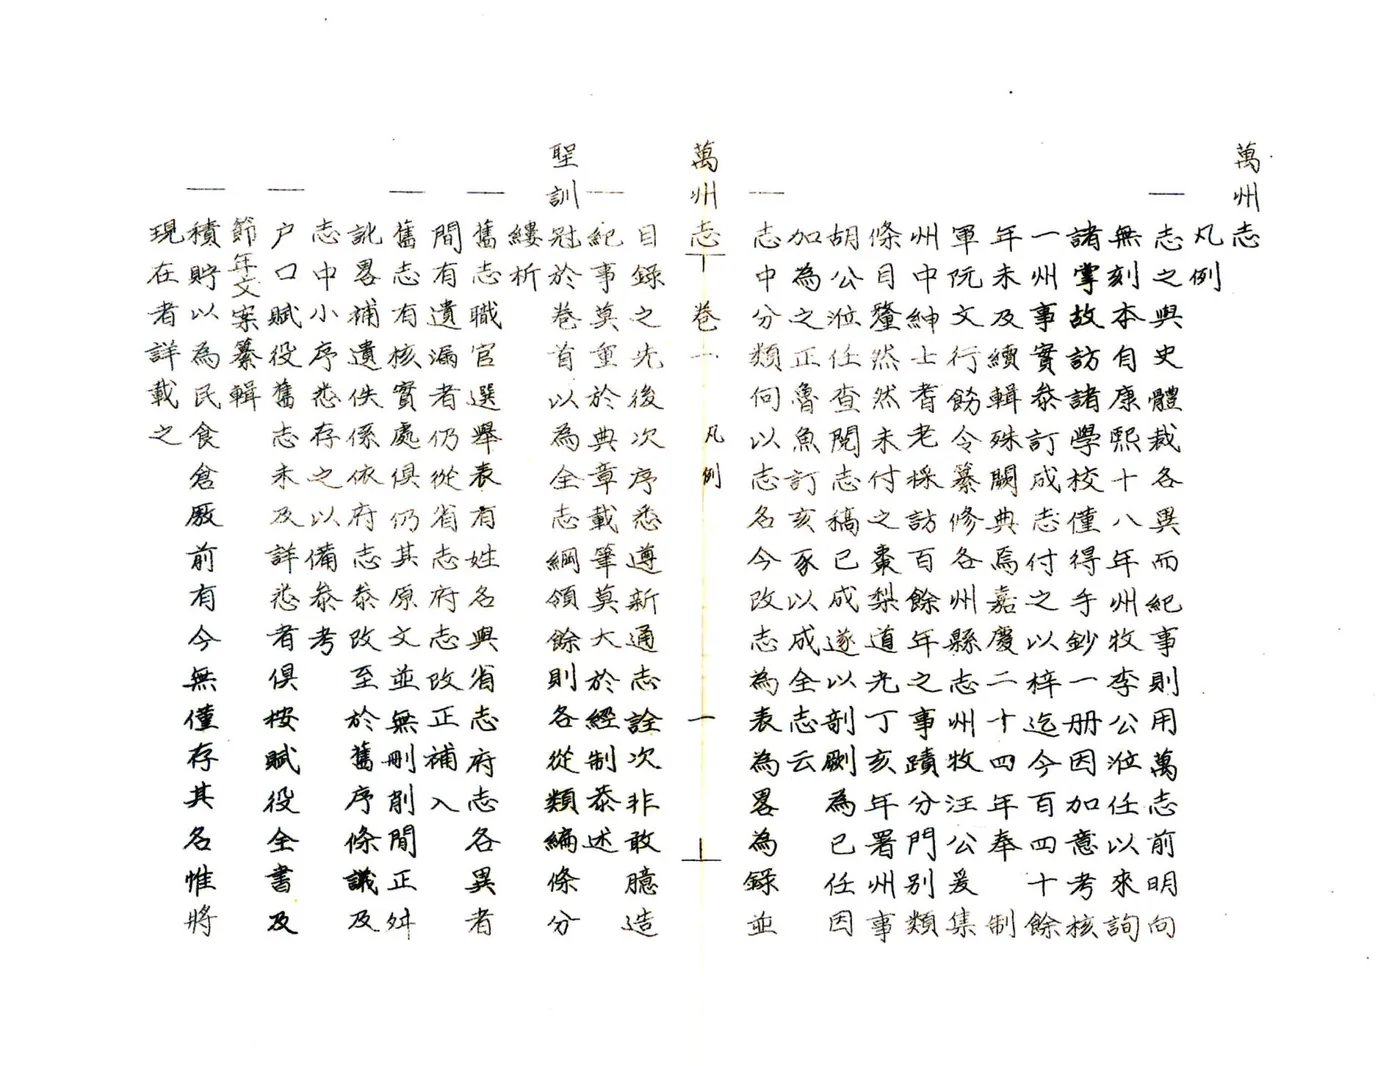 萬州志
凡例
一志之與史體裁各異而紀事則用萬志前明向
無刻本自康熙十八年州牧李公涖任以來詢
諸掌故訪諸學校僅得手鈔一册因加意考核
一州事實叅訂成志付之以梓迄今百四十餘
年未及續輯殊闕典焉嘉慶二十四年奉 制
軍阮文行飭令纂修各州縣志州牧汪公爰集
州中紳士耆老採訪百餘年之事蹟分門別類
條目釐然然未付之棗梨道光丁亥年署州事
胡公涖任查閱志稿已成遂以剞劂為已任因
加為之正魯魚訂亥豕以成全志云
一志中分類何以志名今改志為表為畧為錄並
萬州志 卷一 凡例 一
目錄之先後次序悉遵新通志詮次非敢臆造
一紀事莫重於典章載筆莫大於經制恭述
聖訓冠於卷首以為全志綱領餘則各從類編條分
縷析
一舊志職官選舉表有姓名與省志府志各異者
間有遺漏者仍從省志府志改正補入
一舊志有核實處俱仍其原文並無刪削間正舛
訛畧補遺佚係依府志叅改至於舊序條議及
志中小序悉存之以備叅考
一户口賦役舊志未及詳悉者俱按賦役全書及
節年文案纂輯
一積貯以為民食倉廒前有今無僅存其名惟將
現在者詳載之